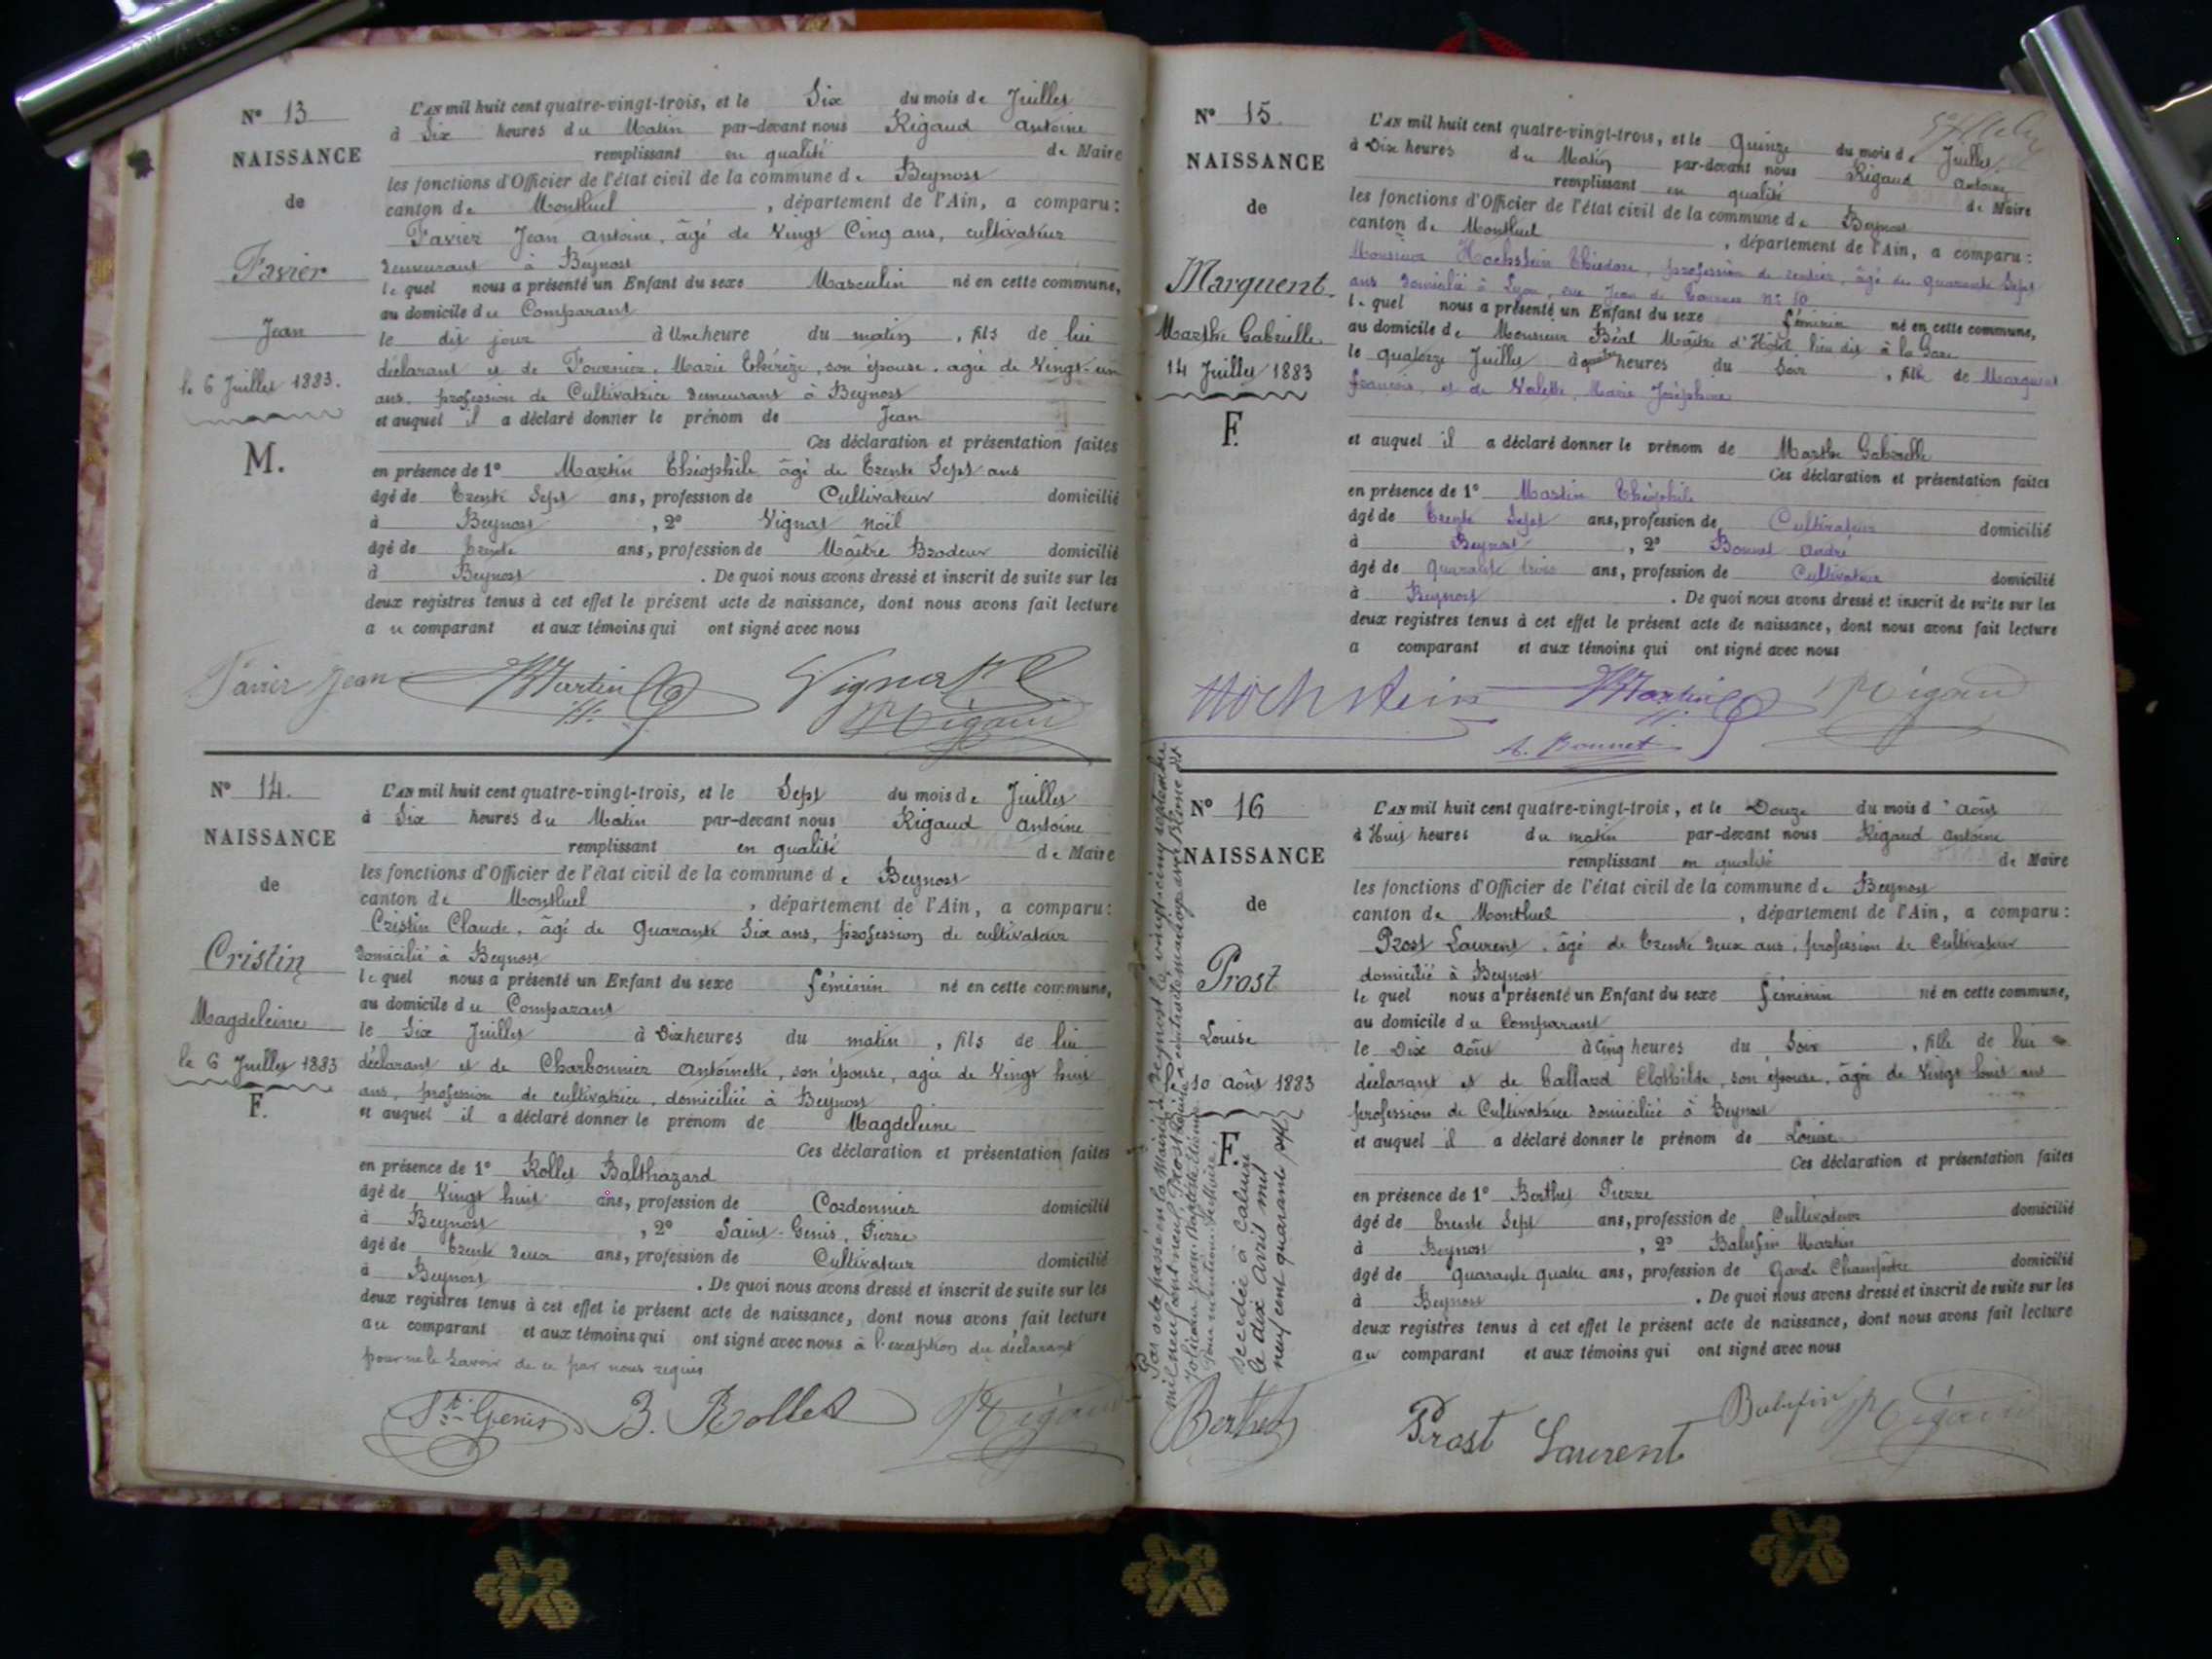 N° 13
NAISSANCE
de
Favier
Jean
le 6 Juillet 1883.
M.
L'AN mil huit cent quatre-vingt-trois, et le Six du mois de Juillet
à Six heures du Matin par-devant nous Rigaud Antoine
remplissant en qualité de Maire
les fonctions d'Officier de l'état civil de la commune de Beynost
canton de Montluel, département de l'Ain, a comparu :
Favier Jean Antoine, âgé de Vingt Cinq ans, cultivateur
demeurant à Beynost
lequel nous a présenté un Enfant du sexe Masculin né en cette commune,
au domicile du Comparant
le dit jour à Une heure du matin, fils de lui
déclarant et de Fournier, Marie Thérèze, son épouse, agée de Vingt-un
ans, profession de Cultivatrice demeurant à Beynost
et auquel il a déclaré donner le prénom de Jean
Ces déclaration et présentation faites
en présence de 1° Martin Théophile âgé de Trente Sept ans
âgé de Trente Sept ans, profession de Cultivateur domicilié
à Beynost, 2° Vignat Noël
âgé de trente ans, profession de Maître Brodeur domicilié
à Beynost. De quoi nous avons dressé et inscrit de suite sur les
deux registres tenus à cet effet le présent acte de naissance, dont nous avons fait lecture
au comparant et aux témoins qui ont signé avec nous
Favier Jean Martin Th. Vignat N.
Rigaud
N° 14.
NAISSANCE
de
Cristin
Magdeleine
le 6 Juillet 1883
F.
L'AN mil huit cent quatre-vingt-trois, et le Sept du mois de Juillet
à Six heures du Matin par-devant nous Rigaud Antoine
remplissant en qualité de Maire
les fonctions d'Officier de l'état civil de la commune de Beynost
canton de Montluel, département de l'Ain, a comparu :
Cristin Claude, âgé de Quarante Six ans, profession de cultivateur
domicilié à Beynost
lequel nous a présenté un Enfant du sexe féminin né en cette commune,
au domicile du Comparant
le Six Juillet à Dix heures du matin, fils de lui
déclarant et de Charbonnier Antoinette, son épouse, agée de Vingt huit
ans, profession de cultivatrice, domiciliée à Beynost
et auquel il a déclaré donner le prénom de Magdeleine
Ces déclaration et présentation faites
en présence de 1° Rollet Balthazard
âgé de Vingt huit ans, profession de Cordonnier domicilié
à Beynost, 2° Saint-Genis, Pierre
âgé de Trente deux ans, profession de Cultivateur domicilié
à Beynost. De quoi nous avons dressé et inscrit de suite sur les
deux registres tenus à cet effet le présent acte de naissance, dont nous avons fait lecture
au comparant et aux témoins qui ont signé avec nous à l'exception du déclarant
pour ne le savoir de ce par nous requis
St-Genis B. Rollet Rigaud
N° 15.
NAISSANCE
de
Marquent
Marthe Gabrielle
14 Juillet 1883
F.
L'AN mil huit cent quatre-vingt-trois, et le Quinze du mois de Juillet
à Dix heures du Matin par-devant nous Rigaud Antoine
remplissant en qualité de Maire
les fonctions d'Officier de l'état civil de la commune de Beynost
canton de Montluel, département de l'Ain, a comparu :
Monsieur Hochstein Théodore, profession de rentier, âgé de quarante Sept
ans domicilié à Lyon, rue Jean de Tournes N° 10
lequel nous a présenté un Enfant du sexe féminin né en cette commune,
au domicile de Monsieur Béal Maître d'Hôtel lieu dit à la Gare
le quatorze Juillet à quatre heures du Soir, fille de Marquent
François, et de Valette, Marie Joséphine
et auquel il a déclaré donner le prénom de Marthe Gabrielle
Ces déclaration et présentation faites
en présence de 1° Martin Théophile
âgé de trente Sept ans, profession de Cultivateur domicilié
à Beynost, 2° Bonnet André
âgé de quarante trois ans, profession de Cultivateur domicilié
à Beynost. De quoi nous avons dressé et inscrit de suite sur les
deux registres tenus à cet effet le présent acte de naissance, dont nous avons fait lecture
a comparant et aux témoins qui ont signé avec nous
Hochstein Martin Th. Rigaud
A. Bonnet
N° 16
NAISSANCE
de
Prost
Louise
10 Août 1883
F.
Par acte passé en la Mairie de Beynost le vingt cinq septembre
mil neuf cent neuf, Prost Louise a contracté mariage avec
Jean Baptiste
Pour mention
Décédée à Caluire
le deux Avril mil
neuf cent quarante sept
L'AN mil huit cent quatre-vingt-trois, et le Douze du mois d'Août
à Huit heures du matin par-devant nous Rigaud Antoine
remplissant en qualité de Maire
les fonctions d'Officier de l'état civil de la commune de Beynost
canton de Montluel, département de l'Ain, a comparu :
Prost Laurent, âgé de Trente deux ans, profession de Cultivateur
domicilié à Beynost
lequel nous a présenté un Enfant du sexe féminin né en cette commune,
au domicile du Comparant
le Dix Août à Cinq heures du Soir, fille de lui
déclarant et de Ballard Clothilde, son épouse, âgée de Vingt huit ans
profession de Cultivatrice domiciliée à Beynost
et auquel il a déclaré donner le prénom de Louise
Ces déclaration et présentation faites
en présence de 1° Berthet Pierre
âgé de Trente Sept ans, profession de Cultivateur domicilié
à Beynost, 2° Balufin Martin
âgé de Quarante quatre ans, profession de Garde Champêtre domicilié
à Beynost. De quoi nous avons dressé et inscrit de suite sur les
deux registres tenus à cet effet le présent acte de naissance, dont nous avons fait lecture
au comparant et aux témoins qui ont signé avec nous
Berthet Prost Laurent Balufin Rigaud